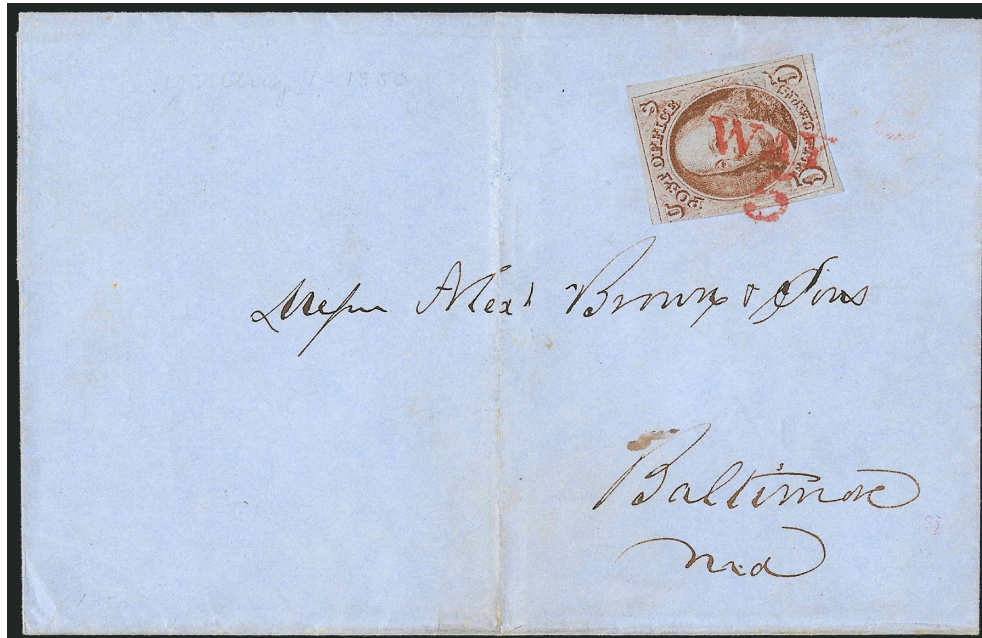 Aug 1 - 1850
POST OFFICE
FIVE CENTS
U S
5 5
Messrs Alexr Brown & Sons
Baltimore
Md